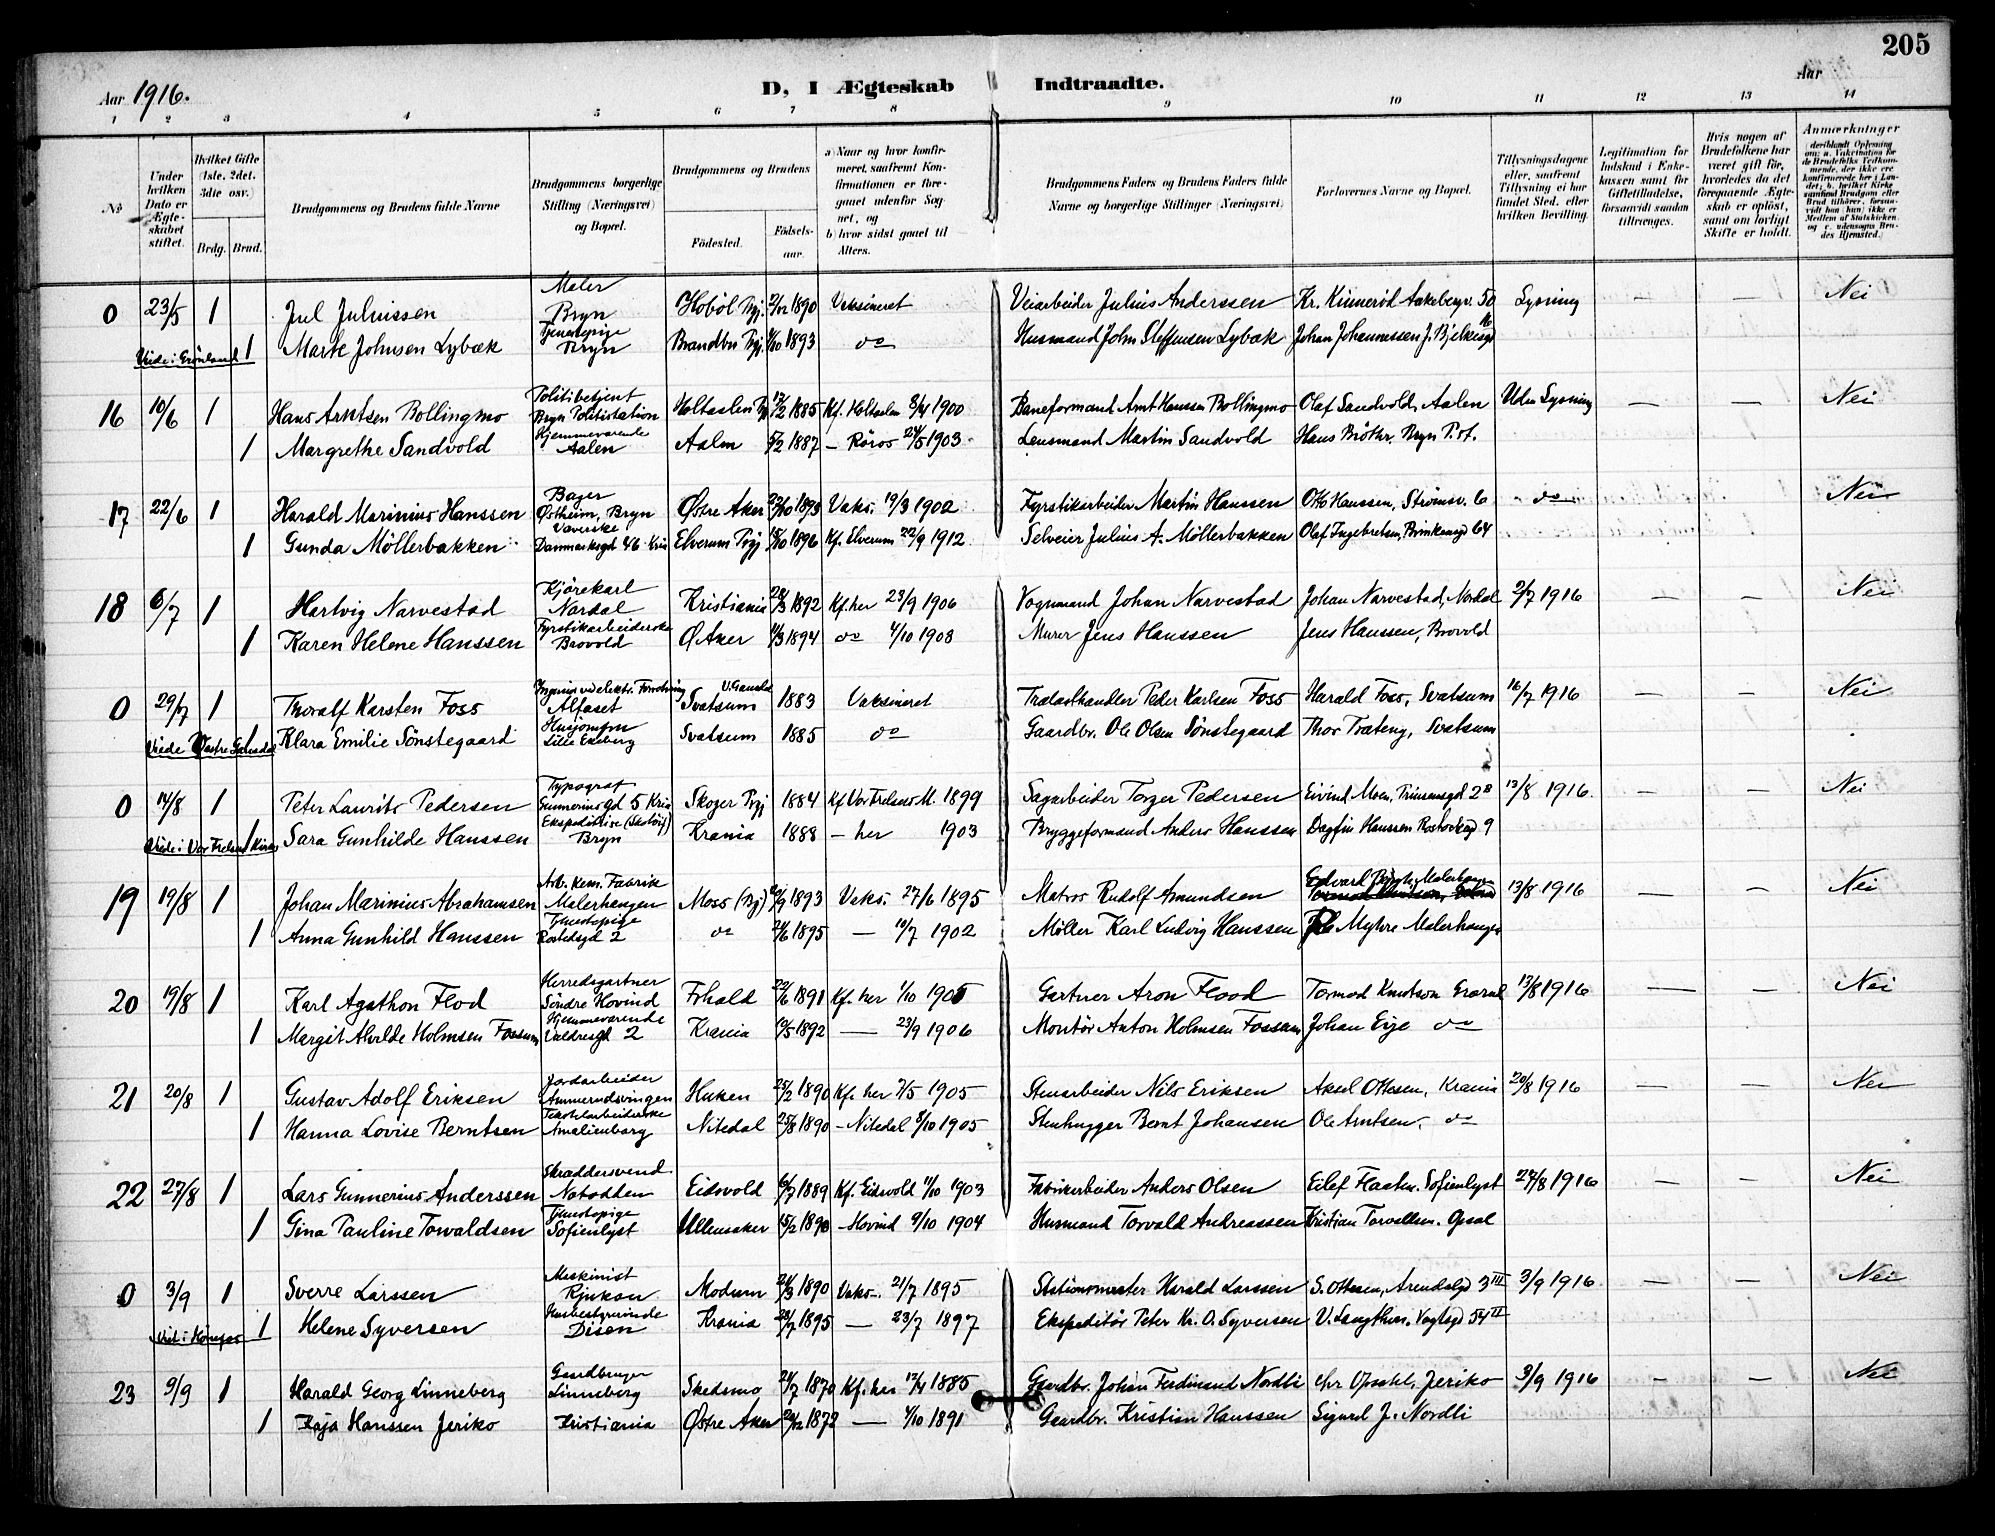 205
Aar 1916.
D, I Ægteskab Indtraadte.
Aar
1 2 3 4 5 6 7 8 9 10 11 12 13 14
№
Under hvilken Dato er Ægteskabet stiftet.
Hvilket Gifte (1ste, 2det, 3die osv.)
Brdg. Brud.
Brudgommens og Brudens fulde Navne
Brudgommens borgerlige Stilling (Næringsvei) og Bopæl.
Brudgommens og Brudens
Födested. Födselsaar.
a) Naar og hvor konfirmeret, saafremt Konfirmationen er foregaaet udenfor Sognet, og
b) hvor sidst gaaet til Alters.
Brudgommens Faders og Brudens Faders fulde Navne og borgerlige Stillinger (Næringsvei)
Forlovernes Navne og Bopæl.
Tillysningsdagene eller, saafremt Tillysning ei har fundet Sted, efter hvilken Bevilling.
Legitimation for Indskud i Enkekassen samt for Giftetilladelse, forsaavidt saadan tiltrænges.
Hvis nogen af Brudefolkene har været gift før, hvorledes da det foregaaende Ægteskab er oplöst, samt om lovligt Skifte er holdt.
Anmærkninger
(deriblandt Oplysning om: a. Vakcination for de Brudefolks Vedkommende, der ikke ere konfirmerede her i Landet; b. hvilket Kirkesamfund Brudgom eller Brud tilhører, forsaavidt han (hun) ikke er Medlem af Statskirken, og c. udensogns Brudes Hjemsted.)
0 23/5 1 Jul Juliussen Maler Bryn Hobøl Pgj. 2/12 1890 Vaksineret Veiarbeider Julius Anderssen Kr. Kinnerød Aakebergv. 50 Lysning — — Nei
Viede i Grønland 1 Marte Johnsen Lybæk Tjenestepige Bryn Brandbu Pgj. 4/10 1893 do Husmand John Steffensen Lybæk Johan Johannessen J. Bjelkesgd 16
16 10/6 1 Hans Arntsen Bollingmo Politibetjent Bryn Politistation Holtaalen Pgj 17/2 1885 Kf. Holtaalen 8/4 1900 Baneformand Arnt Hanssen Bollingmo Olaf Sandvold, Aalen Uden Lysning — — Nei
1 Margrethe Sandvold Hjemmeværende Aalen Aalen 5/2 1887 — Røros 24/5 1903. Lensmand Martin Sandvold Hans Bröthr. Bryn P.st.
17 22/6 1 Harald Marinius Hanssen Bager Østheim, Bryn Østre Aker 22/10 1893 Vaks. 19/3 1902 Fyrstikarbeider Martin Hanssen Otto Hanssen, Strömsv. 6 do Nei
1 Gunda Møllerbakken Væverske Danmarksgd 46 Kria Elverum Pgj 15/10 1896 Kf. Elverum 22/9 1912 Selveier Julius A. Møllerbakken Olaf Ingebretsen, Brinkensgd 64
18 6/7 1 Hartvig Narvestad Kjørekarl Nordal Kristiania 28/3 1892 Kf. her 23/9 1906 Vognmand Johan Narvestad Johan Narvestad, Nordal 2/7 1916 — — Nei
1 Karen Helene Hanssen Fyrstikarbeiderske Brovold Ø Aker 11/3 1894 do 4/10 1908 Murer Jens Hanssen Jens Hanssen, Brovold
0 29/7 1 Thoralf Karsten Foss Ingeniør ved elektr. Forretning Alfaset Svatsum V. Gausdal 1883 Vaksineret Trælasthandler Peder Karlsen Foss Harald Foss, Svatsum 16/7 1916 — — Nei
Viede i Vestre Gausdal 1 Klara Emilie Sönstegaard Husjomfru Lille Ekeberg Svatsum 1885 do Gaardbr. Ole Olsen Sönstegaard Thor Træteng, Svatsum
0 14/8 1 Peter Laurits Pedersen Typograf Gunnerius gd 5 Kria Skoger Pgj 1884 Kf. Vor Frelsers M. 1899 Sagarbeider Torger Pedersen Eivind Moen, Prinsensgd 2 B 13/8 1916. — — Nei
Viede i Vor Frelsers Kirke 1 Sara Gunhilde Hanssen Ekspeditrise (Skotöi) Bryn Krania 1888 — her 1903 Bryggeformand Anders Hanssen Dagfin Hanssen Rostockgd 9
19 19/8 1 Johan Marinius Abrahamsen Arb. kem. Fabrik Malerhaugen Moss (By) 20/9 1893 Vaks. 27/6 1895 Matros Rudolf Amundsen Edvard Malerhaugen 13/8 1916 — — Nei
1 Anna Gunhild Hanssen Tjenestepige Rostedsgd 2 do 24/6 1895 — 10/7 1902 Møller Karl Ludvig Hanssen Myhre Malerhaugen
20 19/8 1 Karl Agathon Flod Herredsgartner Söndre Hovind Frhald 22/6 1891 Kf. her 1/10 1905 Gartner Aron Flood Tormod Knutson Grorud 13/8 1916 — — Nei
1 Margit Alvilde Holmsen Fossum Hjemmeværende Valdresgd 2 Krania 10/5 1892 — 23/9 1906 Montör Anton Holmsen Fossum Johan Eije do
21 20/8 1 Gustav Adolf Eriksen Jordarbeider Ammerudsvingen Huken 25/2 1890 Kf. her 7/5 1905 Stenarbeider Nils Eriksen Aksel Ottesen, Krania 20/8 1916 — — Nei
1 Hanna Lovise Berntsen Tekstilarbeiderske Amalienborg Nitedal 25/8 1890 — Nitedal 8/10 1905 Stenhugger Bernt Johansen Ole Arntsen, do
22 27/8 1 Lars Gunnerius Anderssen Skræddersvend Notodden Eidsvold 6/7 1889 Kf. Eidsvold 11/10 1903 Fabrikarbeider Anders Olsen Eilef Flaaten. Sofienlyst 27/8 1916 — — Nei
1 Gina Pauline Torvaldsen Tjenestepige Sofienlyst Ullensaker 15/2 1890 — Hovind 9/10 1904 Husmand Torvald Andreassen Kristian Torvaldsen. Opsal
0 3/9 1 Sverre Larssen Maskinist Rjukan Modum 24/3 1890 Vaks. 21/7 1895 Stationsmester Harald Larssen S. Ottesen, Arendalsgd 3 III 3/9 1916 — — Nei
1 Helene Syversen Husbestyrerinde Disen Krania 28/7 1895 — 23/7 1897 Ekspeditör Peter Kr. O. Syversen V. Langthon, Vogtsgd 54 II
23 9/9 1 Harald Georg Linneberg Gaardbruger Linneberg Skedsmo 24/7 1870 Kf. her 12/4 1885 Gaardbr. Johan Ferdinand Nordli Chr Opsahl, Jeriko 3/9 1916 — — Nei
1 Kaja Hanssen Jeriko Kristiania Østre Aker 24/12 1872 — 4/10 1891 Gaardbr. Kristian Hanssen Sigurd J. Nordli